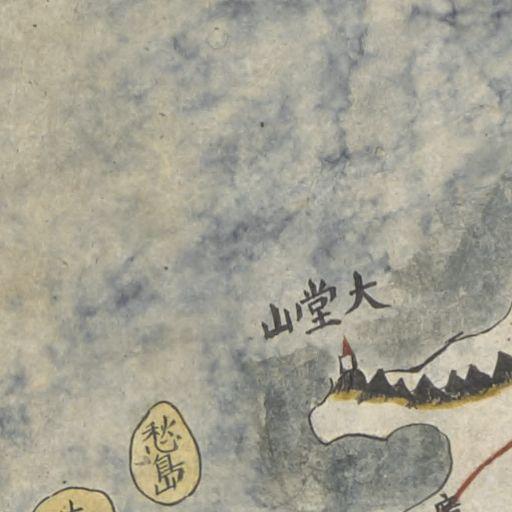 大堂山
愁島